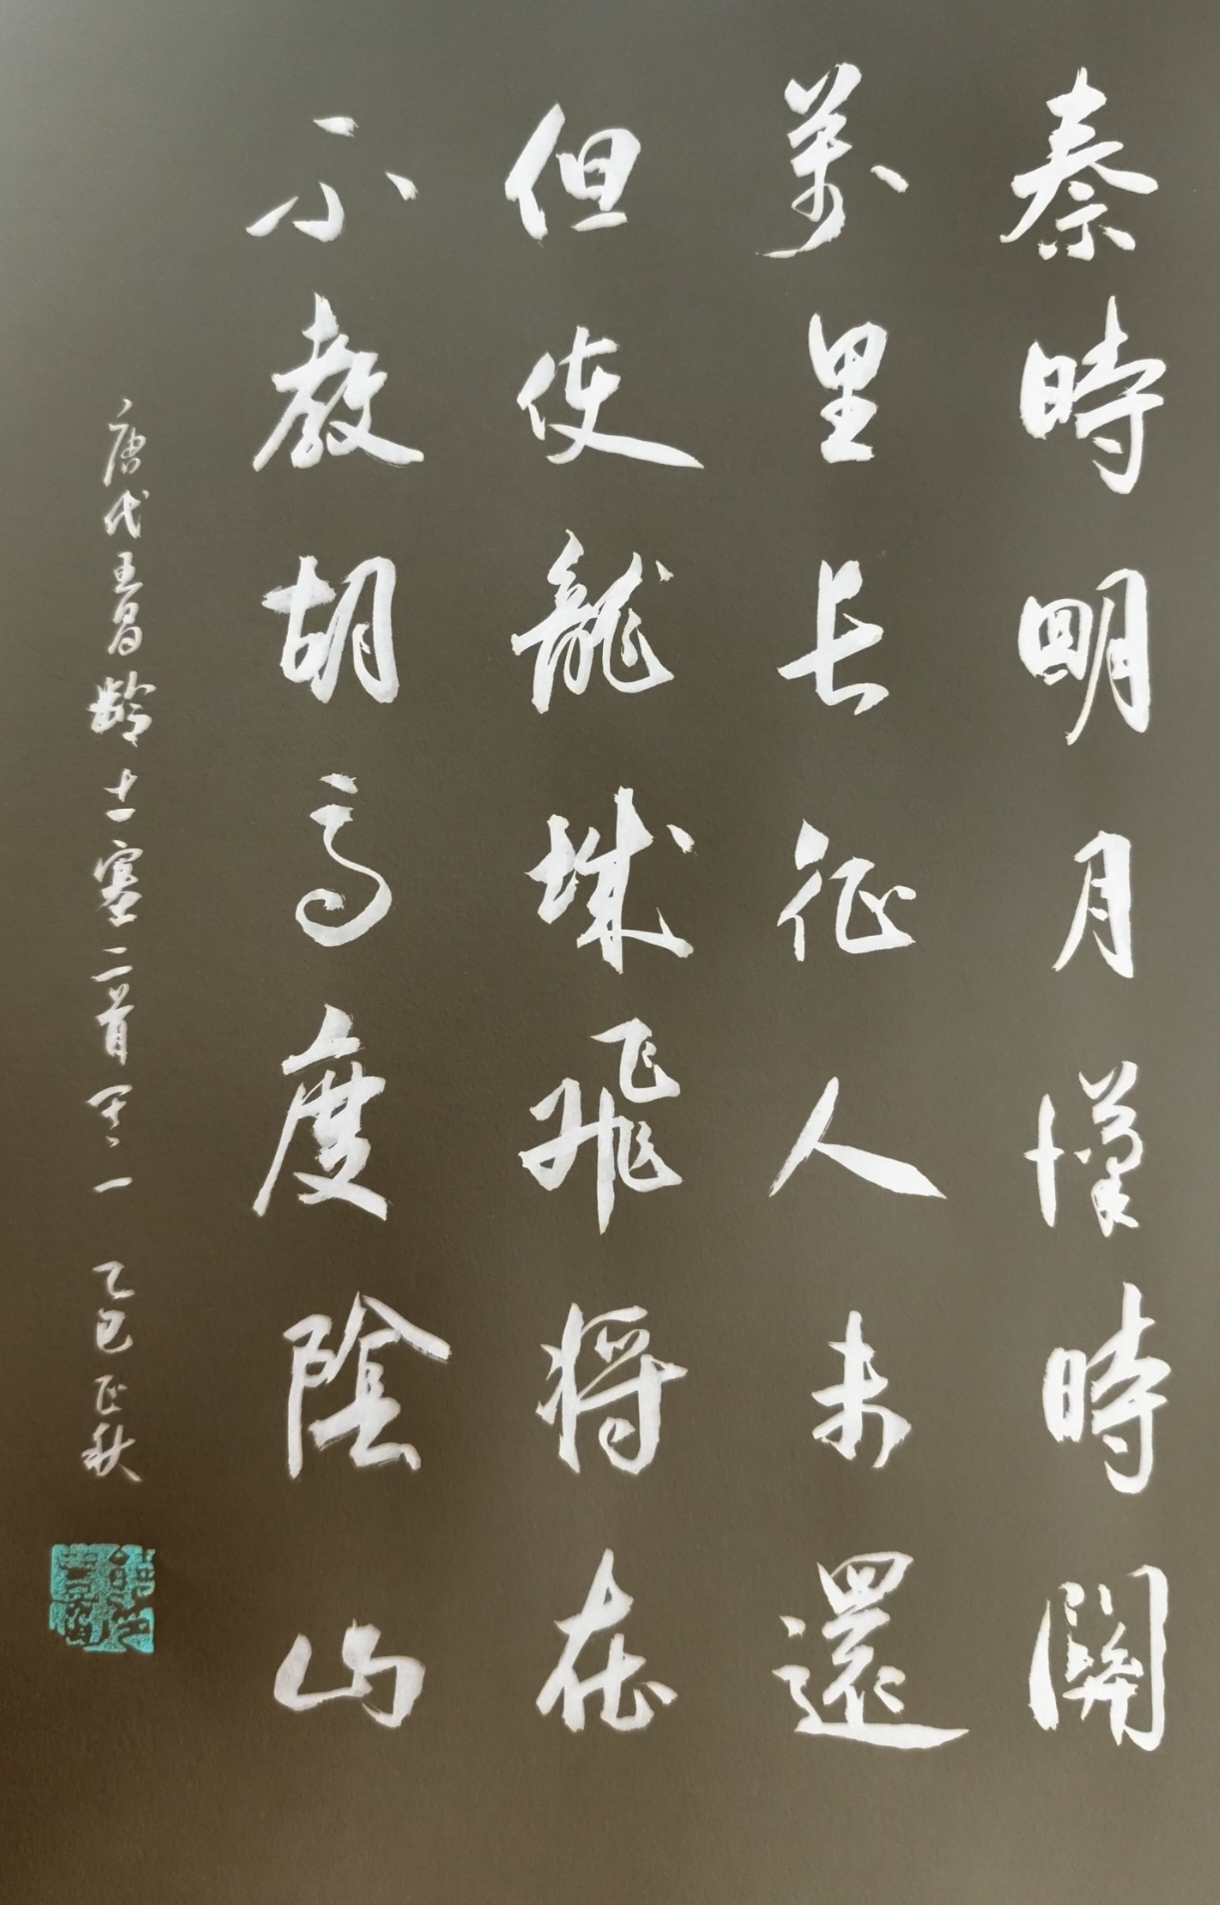 秦時明月漢時關
萬里长征人未還
但使龍城飛将在
不教胡馬度陰山
唐代王昌齡出塞二首其一 乙巳正秋